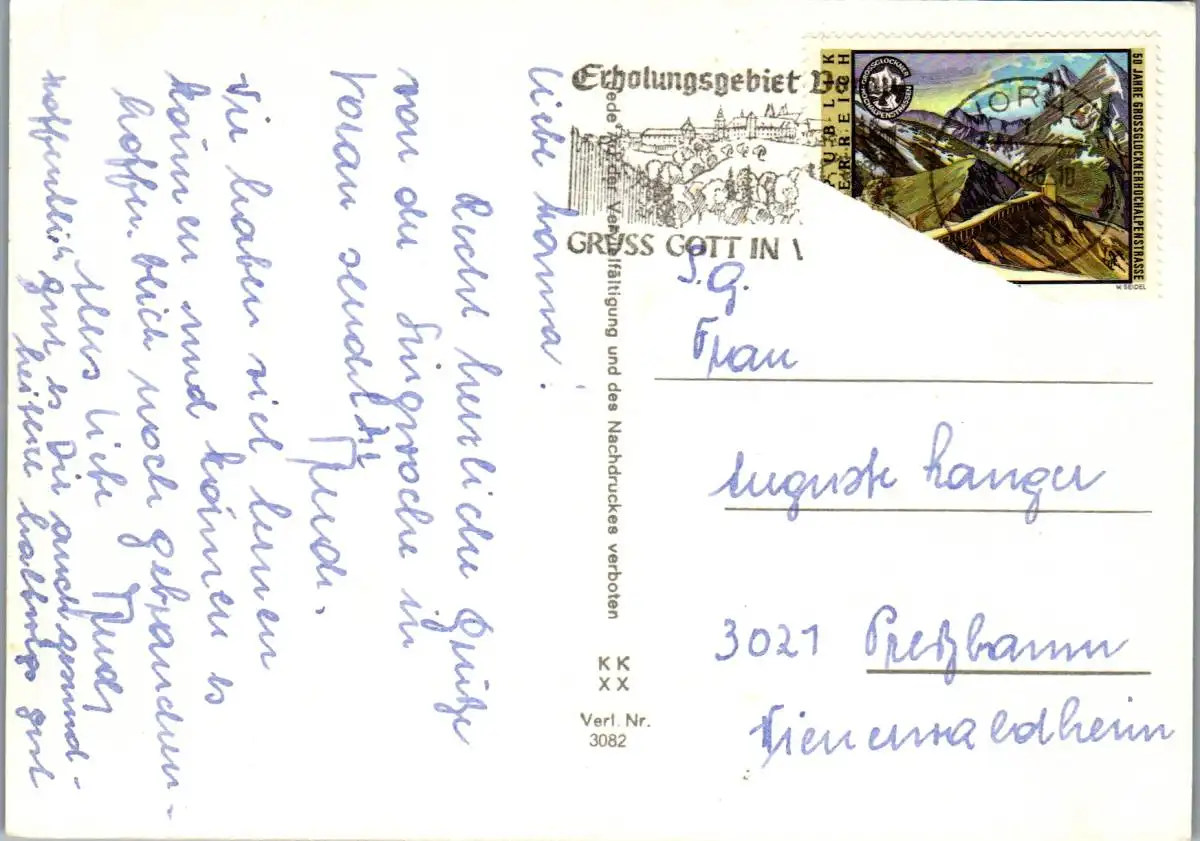 Liebe Hanna!
Recht herzliche Grüße
von der Singwoche in
Vorau sendet Dir
Trude.
Wir haben viel lernen
können und können es
hoffentlich noch gebrauchen.
Alles Liebe
Trude
Hoffentlich geht es Dir auch gesund-
heitlich halbwegs gut
Erholungsgebiet Vo
GRÜSS GOTT IN V
REPUBLIK
ÖSTERREICH
50 JAHRE GROSSGLOCKNERHOCHALPENSTRASSE
GROSSGLOCKNER
HOCHALPENSTRASSE
W. SEIDEL
Jede Art der Vervielfältigung und des Nachdruckes verboten
K K
X X
Verl. Nr.
3082
S. G.
Frau
Auguste Langer
3021 Preßbaum
Wienerwaldheim